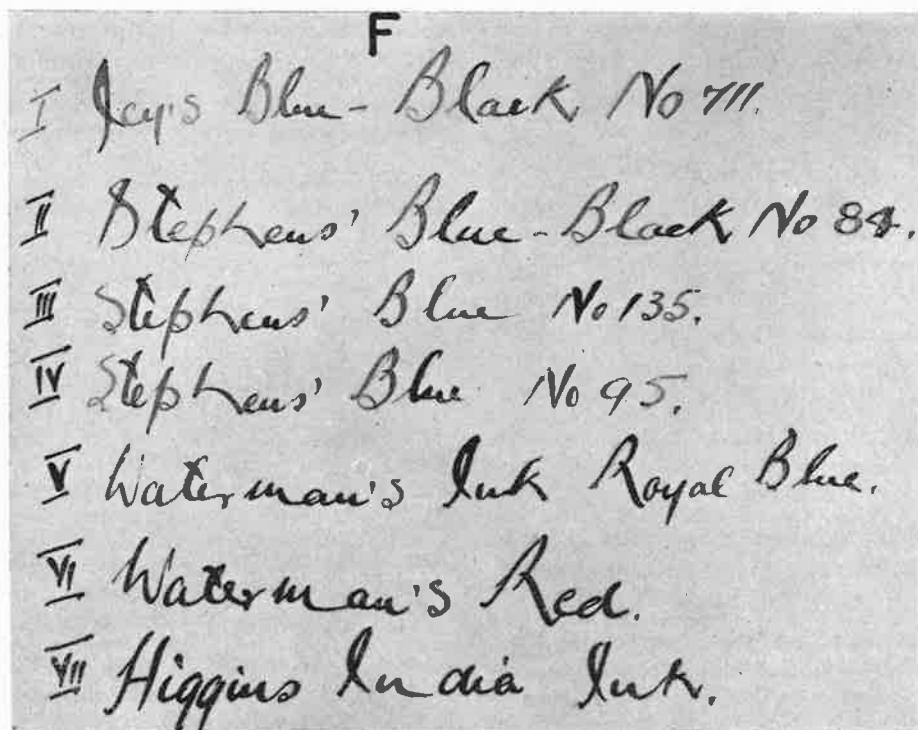 F
I Jay's Blue-Black No 711.
II Stephens' Blue-Black No 84.
III Stephens' Blue No 135.
IV Stephens' Blue No 95.
V Waterman's Ink Royal Blue.
VI Waterman's Red.
VII Higgins India Ink.